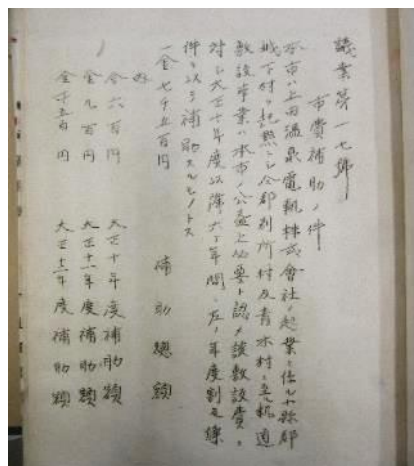 議案第一七號
市費補助ノ件
本市ハ上田温泉電軌株式會社ノ起業ニ係ル小縣郡
城下村ヲ起點トシ仝郡別所村及青木村ニ至ル軌道
敷設事業ハ本市ノ公益上必要ト認メ該敷設費ニ
對シ大正十年度以降六ケ年間ニ左ノ年度割ヲ條
件ヲ以テ補助スルモノトス
一金七千五百円 補助總額
内
金六百円 大正十年度補助額
金九百円 大正十一年度補助額
金千五百円 大正十二年度補助額